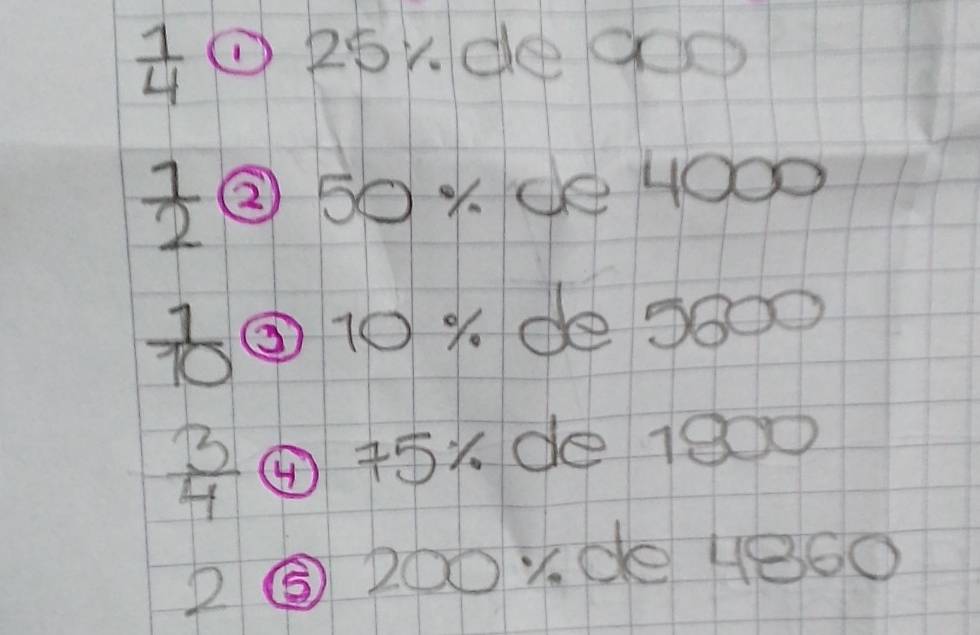 1/4 ① 25% de 900
1/2 ② 50% de 4000
1/10 ③ 10% de 5600
3/4 ④ 75% de 1800
2 ⑤ 200% de 4860